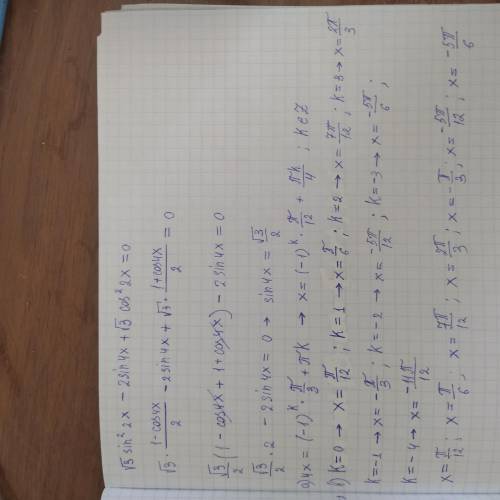 √3 sin² 2x − 2sin 4x + √3 cos² 2x = 0
√3 · (1 − cos4x)/2 − 2sin 4x + √3 · (1 + cos4x)/2 = 0
√3/2 (1 − cos4x + 1 + cos4x) − 2sin 4x = 0
√3/2 · 2 − 2sin 4x = 0 → sin 4x = √3/2
а) 4x = (−1)^K · π/3 + πK → x = (−1)^K · π/12 + πK/4 ; K ∈ Z
б) K=0 → x = π/12 ; K=1 → x = π/6 ; K=2 → x = 7π/12 ; K=3 → x = 2π/3
K=-1 → x = −π/3 ; K=-2 → x = −5π/12 ; K=-3 → x = −5π/6 ;
K=-4 → x = −11π/12
x = π/12 ; x = π/6 ; x = 7π/12 ; x = 2π/3 ; x = −π/3 ; x = −5π/12 ; x = −5π/6